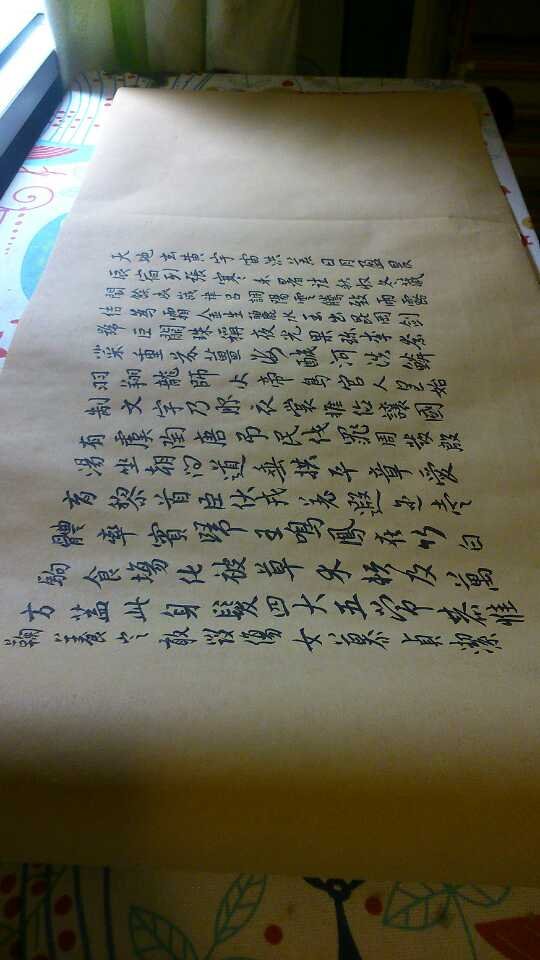 天地玄黄宇宙洪荒日月盈昃
辰宿列張寒来暑往秋收冬藏
閏餘成歲律召調陽雲騰致雨露
結為霜金生麗水玉出崑岡劍
號巨闕珠稱夜光果珍李柰
菜重芥薑海鹹河淡鱗
羽翔龍師火帝鳥官人皇始
制文字乃服衣裳推位讓國
有虞陶唐弔民伐罪周發殷
湯坐朝問道垂拱平章愛
育黎首臣伏戎羌遐迩壹
體率賓歸王鳴鳳在竹白
駒食場化被草木賴及萬
方蓋此身髮四大五常恭惟
鞠養豈敢毀傷女慕貞潔